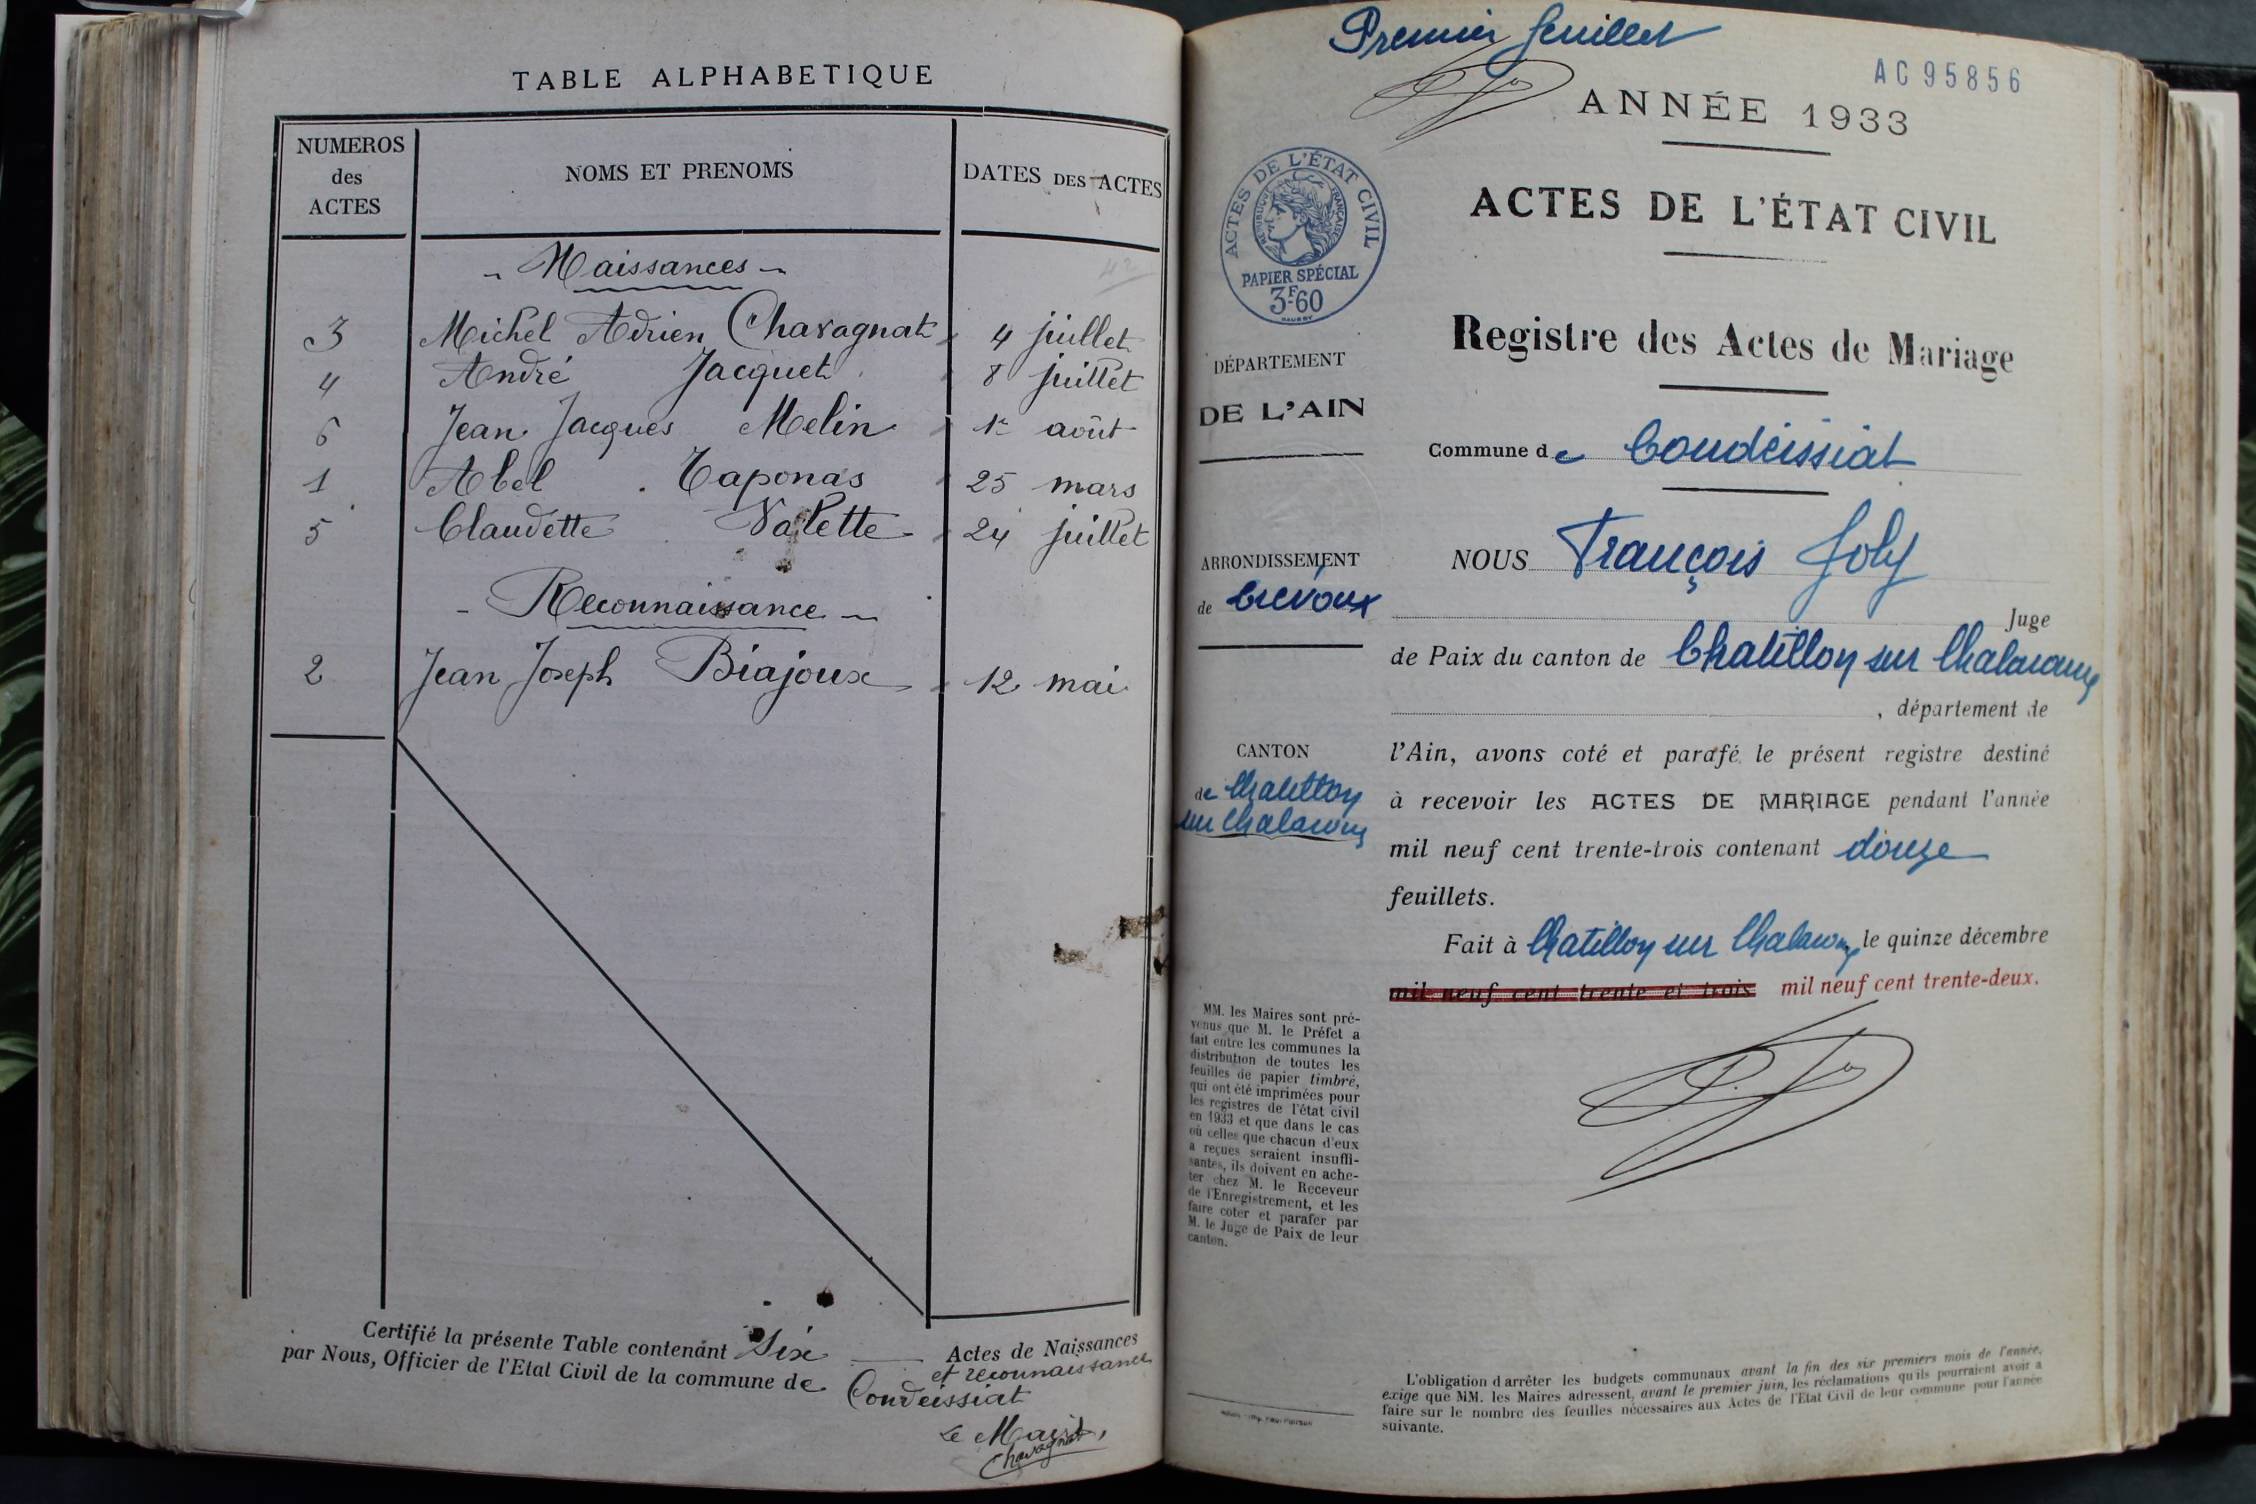 TABLE ALPHABETIQUE
NUMEROS
des
ACTES
NOMS ET PRENOMS
DATES DES ACTES
- Naissances -
42
3 Michel Adrien Chavagnat 4 juillet
4 André Jacquet 8 juillet
6 Jean Jacques Melin 1er août
1 Abel Taponas 25 mars
5 Claudette Valette 24 juillet
- Reconnaissance -
2 Jean Joseph Biajoux 12 mai
Certifié la présente Table contenant Six Actes de Naissances
et reconnaissance
par Nous, Officier de l'Etat Civil de la commune de Condeissiat
Le Maire,
Chavagnat
Premier feuillet
AC95856
ANNÉE 1933
ACTES DE L'ÉTAT CIVIL
RÉPUBLIQUE FRANÇAISE
PAPIER SPÉCIAL
3F60
ACTES DE L'ÉTAT CIVIL
Registre des Actes de Mariage
DÉPARTEMENT
DE L'AIN
Commune de Condéissiat
ARRONDISSEMENT
de Trévoux
CANTON
de Chatillon
sur Chalaronne
NOUS François Joly
Juge
de Paix du canton de Chatillon sur Chalaronne
, département de
l'Ain, avons coté et parafé le présent registre destiné
à recevoir les ACTES DE MARIAGE pendant l'année
mil neuf cent trente-trois contenant douze
feuillets.
Fait à Chatillon sur Chalaronne le quinze décembre
mil neuf cent trente et trois mil neuf cent trente-deux.
MM. les Maires sont pré-
venus que M. le Préfet a
fait entre les communes la
distribution de toutes les
feuilles de papier timbré,
qui ont été imprimées pour
les registres de l'état civil
en 1933 et que dans le cas
où celles que chacun d'eux
a reçues seraient insuffi-
santes, ils doivent en ache-
ter chez M. le Receveur
de l'Enregistrement, et les
faire coter et parafer par
M. le Juge de Paix de leur
canton.
L'obligation d'arrêter les budgets communaux avant la fin des six premiers mois de l'année,
exige que MM. les Maires adressent, avant le premier juin, les réclamations qu'ils pourraient avoir à
faire sur le nombre des feuilles nécessaires aux Actes de l'Etat Civil de leur commune pour l'année
suivante.